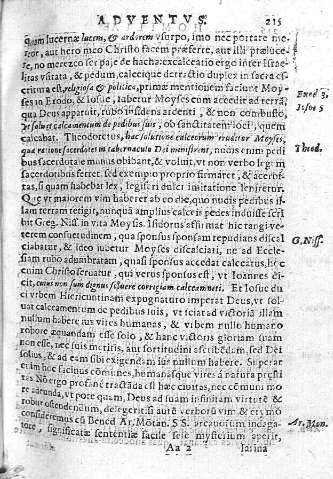 ADVENTVS. 215
quam lucernæ lucem, & ardorem vsurpo, imo nec portare me-
ror, aut hero meo Christo facem præferre, aut illi prælucere
te, no merezco ser paje de hacha: excalceatio ergo inter Israe-
litas vsitata, & pedum, calceique detractio duplex in sacra es-
critura est, religiosa & politica, primæ mentionem faciunt Moy-
ses in Exodo, & Iosue, iubetur Moyses cum accedit ad terrã
Qua Deus apparuit, rubo insidens ardenti, & non combusto,
vt soluet calceamentum de pedibus suis, ob sanctitatem loci, quem
calcabat. Theodoretus, hac solutione calceorum eruditur Moyses,
qua ratione sacerdotes in tabernaculo Dei ministrent, nudis enim pedi
bus sacerdotale munus obibant, & voluit, vt non verbo legem
sacerdotibus ferret, sed exemplo proprio firmaret, & acerbi-
tas, si quam habebat lex, legisferi dulci imitatione leniretur.
Que vt maiorem vim haberet ab eo die, quo nudis pedibus il-
lam terram tetigit, nunquam amplius calceis pedes induisse scri
bit Greg. Niss. in vita Moysis. Isidorus affirmat hic tangi ve-
terem consuetudinem, qua sponsus sponsam repudians discal
ciabatur, & ideo iubetur Moyses discalciari, ne ad Eccle-
siam rubo adumbratam, quasi sponsus accedat calceatus, hoc
enim Christo seruatur, qui verus sponsus est, vt Ioannes di-
cit, cuius non sum dignus soluere corrigiam calceamenti. Et Iosue du
ci vrbem Hiericuntinam expugnaturo imperat Deus, vt sol-
uat calceamentum de pedibus suis, vt sciat ad victoriã illam
nullum habere ius vires humanas, & vrbem nullo humano
robore æquandam esse solo, & hanc victoriã gloriam suam
non esse, nec suis meritis, aut fortitudini ascribẽdam, sed Dei
solius, & ad eam sibi exigendam ius nullum habere.
etim hoc facinus omnes, humanasque vires à natura præsti
tas No ergo profanè tractãda est hæc ciuitas, nec cõmuni mo
re vt pote quam, Deus ad suam infinitam virtutẽ &
robur ostendendum, delegerit: si autẽ verborũ vim & etymo
consideremus ex Bened Ar. Mõtan. S.S. arcanorum indaga-
tore, significatæ sententiæ facile sese mysterium aperit,
Aa 2 latina
Exod 3.
Iosue 5
Theod.
G. Niss.
Ar. Mon.